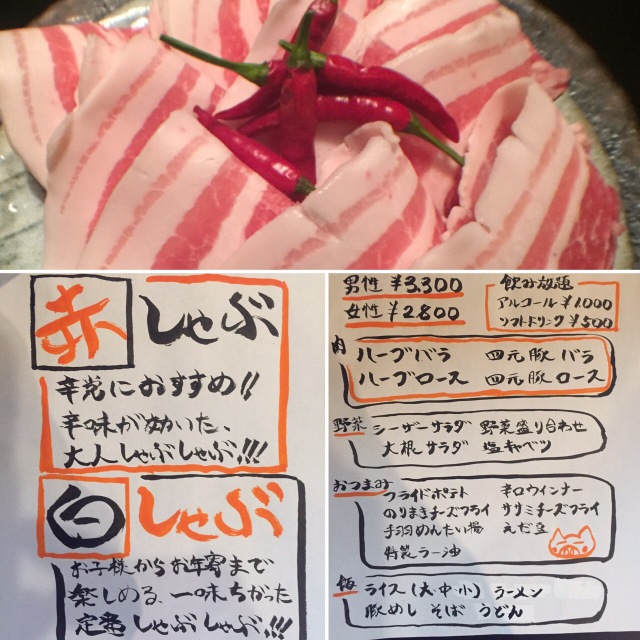 赤しゃぶ
辛党におすすめ!!
辛味が効いた、
大人しゃぶしゃぶ、!!!
白しゃぶ
お子様からお年寄まで
楽しめる、一味ちがった
定番しゃぶしゃぶ!!!
男性 ¥3,300
女性 ¥2800
飲み放題
アルコール ¥1.000
ソフトドリンク ¥500
肉
ハーブバラ 四元豚 バラ
ハーブロース 四元豚 ロース
野菜
シーザーサラダ 野菜盛り合わせ
大根サラダ 塩キャベツ
おつまみ
フライドポテト 辛口ウインナー
のりまきチーズフライ ササミチーズフライ
手羽めんたい揚 えだ豆
特製ラー油
飯
ライス(大中小) ラーメン
豚めし そば うどん